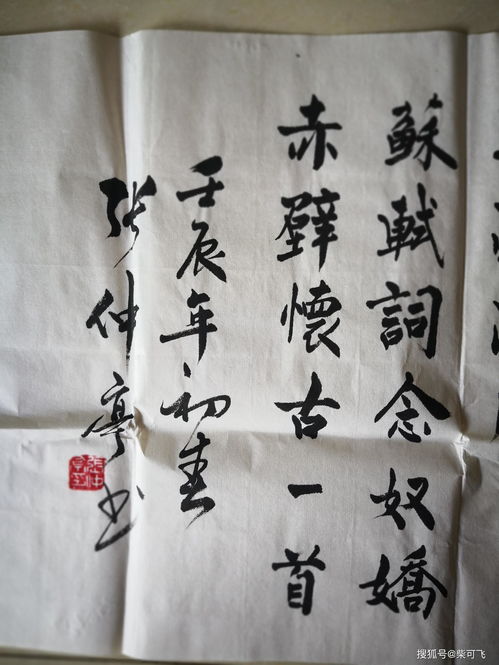 蘇軾詞念奴嬌
赤壁懷古一首
壬辰年初春
張仲亭书
張仲亭印
搜狐号@柴可飞